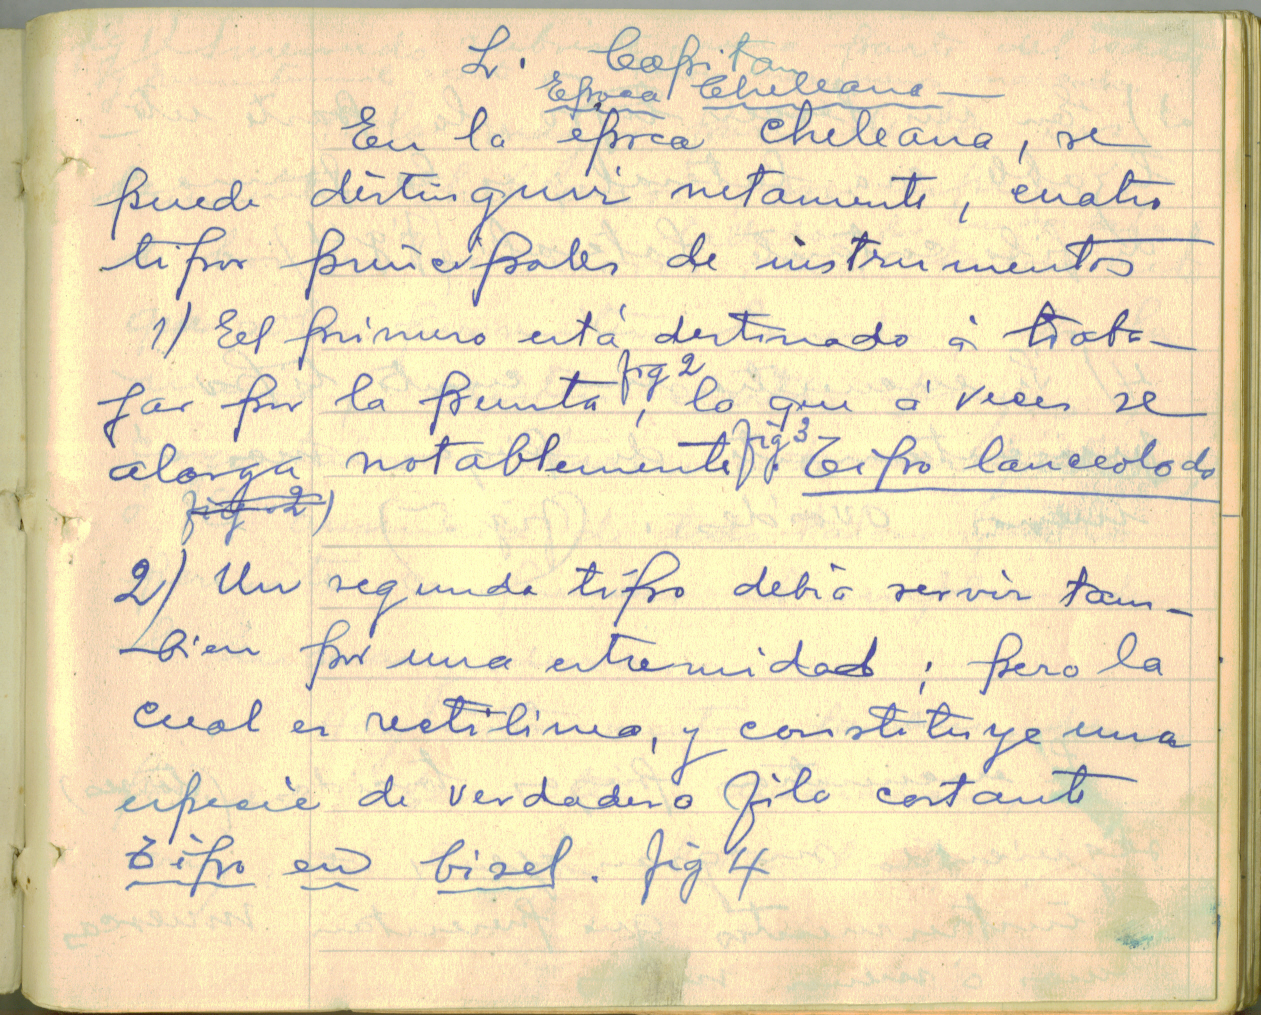 L. Capitan
Epoca Cheleana —
En la época cheleana, se
puede distinguir netamente, cuatro
tipos principales de instrumentos
1) Eel primero está destinado à traba-
jar por la punta fig 2, la que à veces se
alarga notablemente fig 3. Tipo lanceolado
fig 2)
2) Un segundo tipo debia servir tam-
bien por una estremidad; pero la
cual es rectilinea, y constituye una
especie de verdadero filo cortante
Tipo en bisel. fig 4